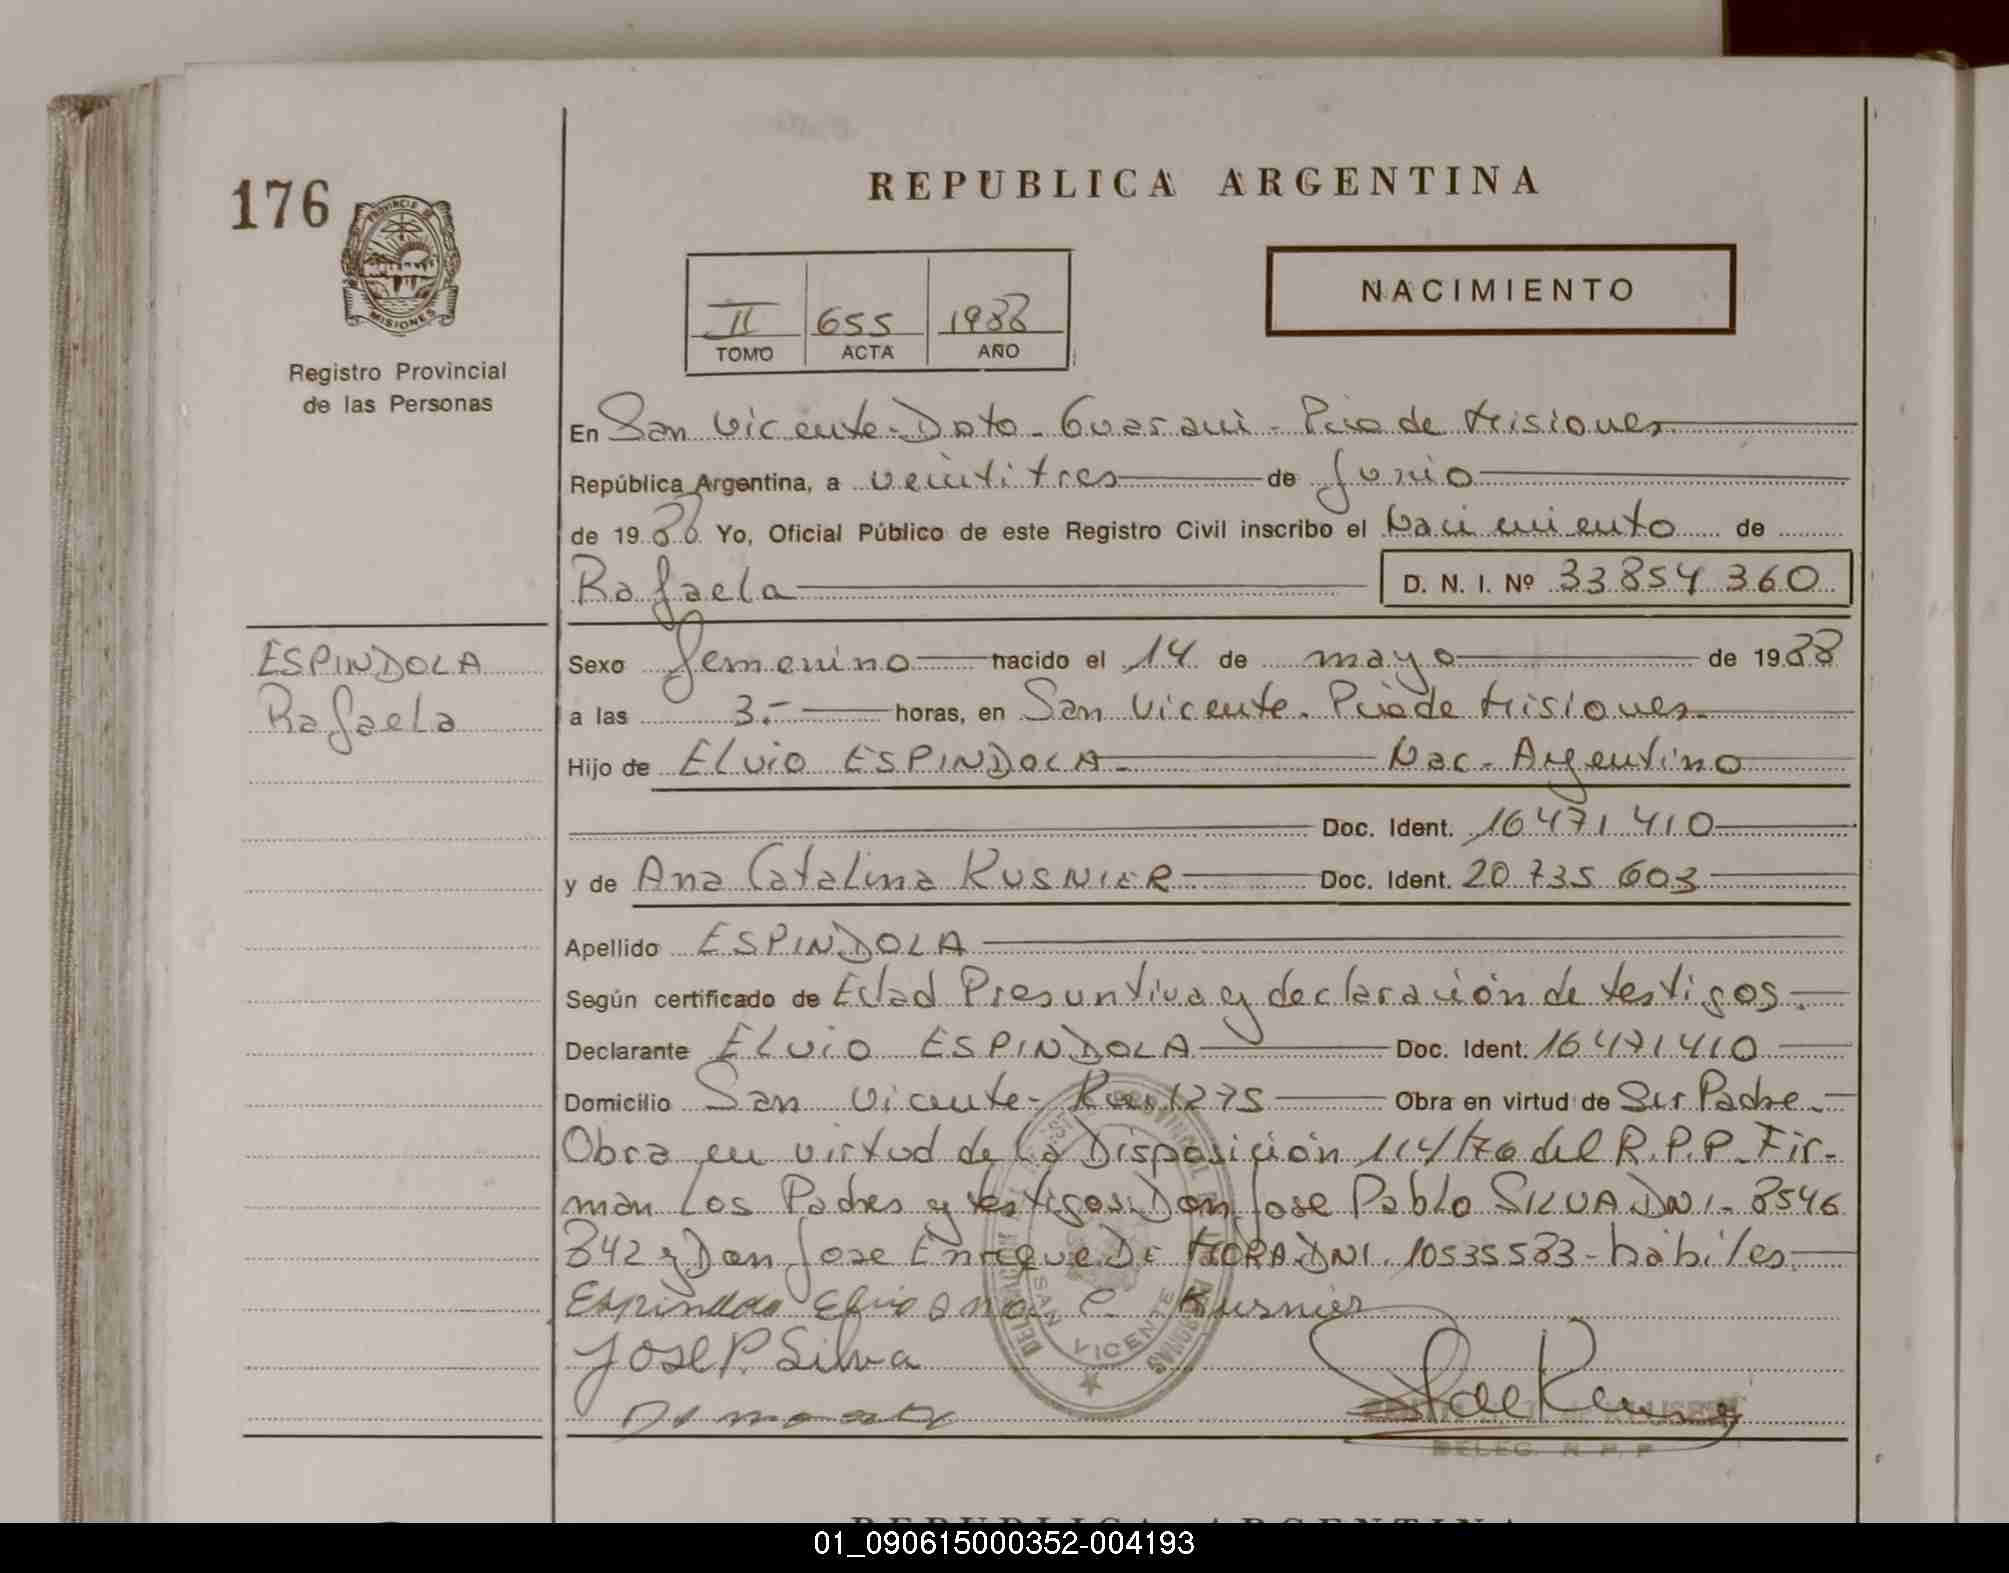 176
PROVINCIA DE
MISIONES
Registro Provincial
de las Personas
REPUBLICA ARGENTINA
II 655 1988
TOMO ACTA AÑO
NACIMIENTO
En San Vicente - Dpto - Guarani - Pcia de Misiones
República Argentina, a veintitres de Junio
de 1988 Yo, Oficial Público de este Registro Civil inscribo el Nacimiento de
Rafaela D. N. I. Nº 33854360
ESPINDOLA
Rafaela
Sexo femenino nacido el 14 de mayo de 1988
a las 3.- horas, en San Vicente. Pcia de Misiones
Hijo de ELVIO ESPINDOLA - Nac. Argentino
Doc. Ident. 16 471 410
y de Ana Catalina KUSNIER Doc. Ident. 20 735 603
Apellido ESPINDOLA
Según certificado de Edad Presuntiva y declaración de testigos.
Declarante ELVIO ESPINDOLA Doc. Ident. 16 471 410
Domicilio San Vicente - Km 1275 Obra en virtud de Ser Padre.
Obra en virtud de la Disposición 114/70 del R.P.P. Fir-
man los Padres y testigos: Don Jose Pablo SILVA DNI - 8546
842 y Don Jose Enrique DE MORA DNI. 10535583 - hábiles
Espindola Elvio Ana C. Kusnier
Jose P. Silva
SAN VICENTE
DELEG. R. P. P.
REPUBLICA ARGENTINA
01_090615000352-004193